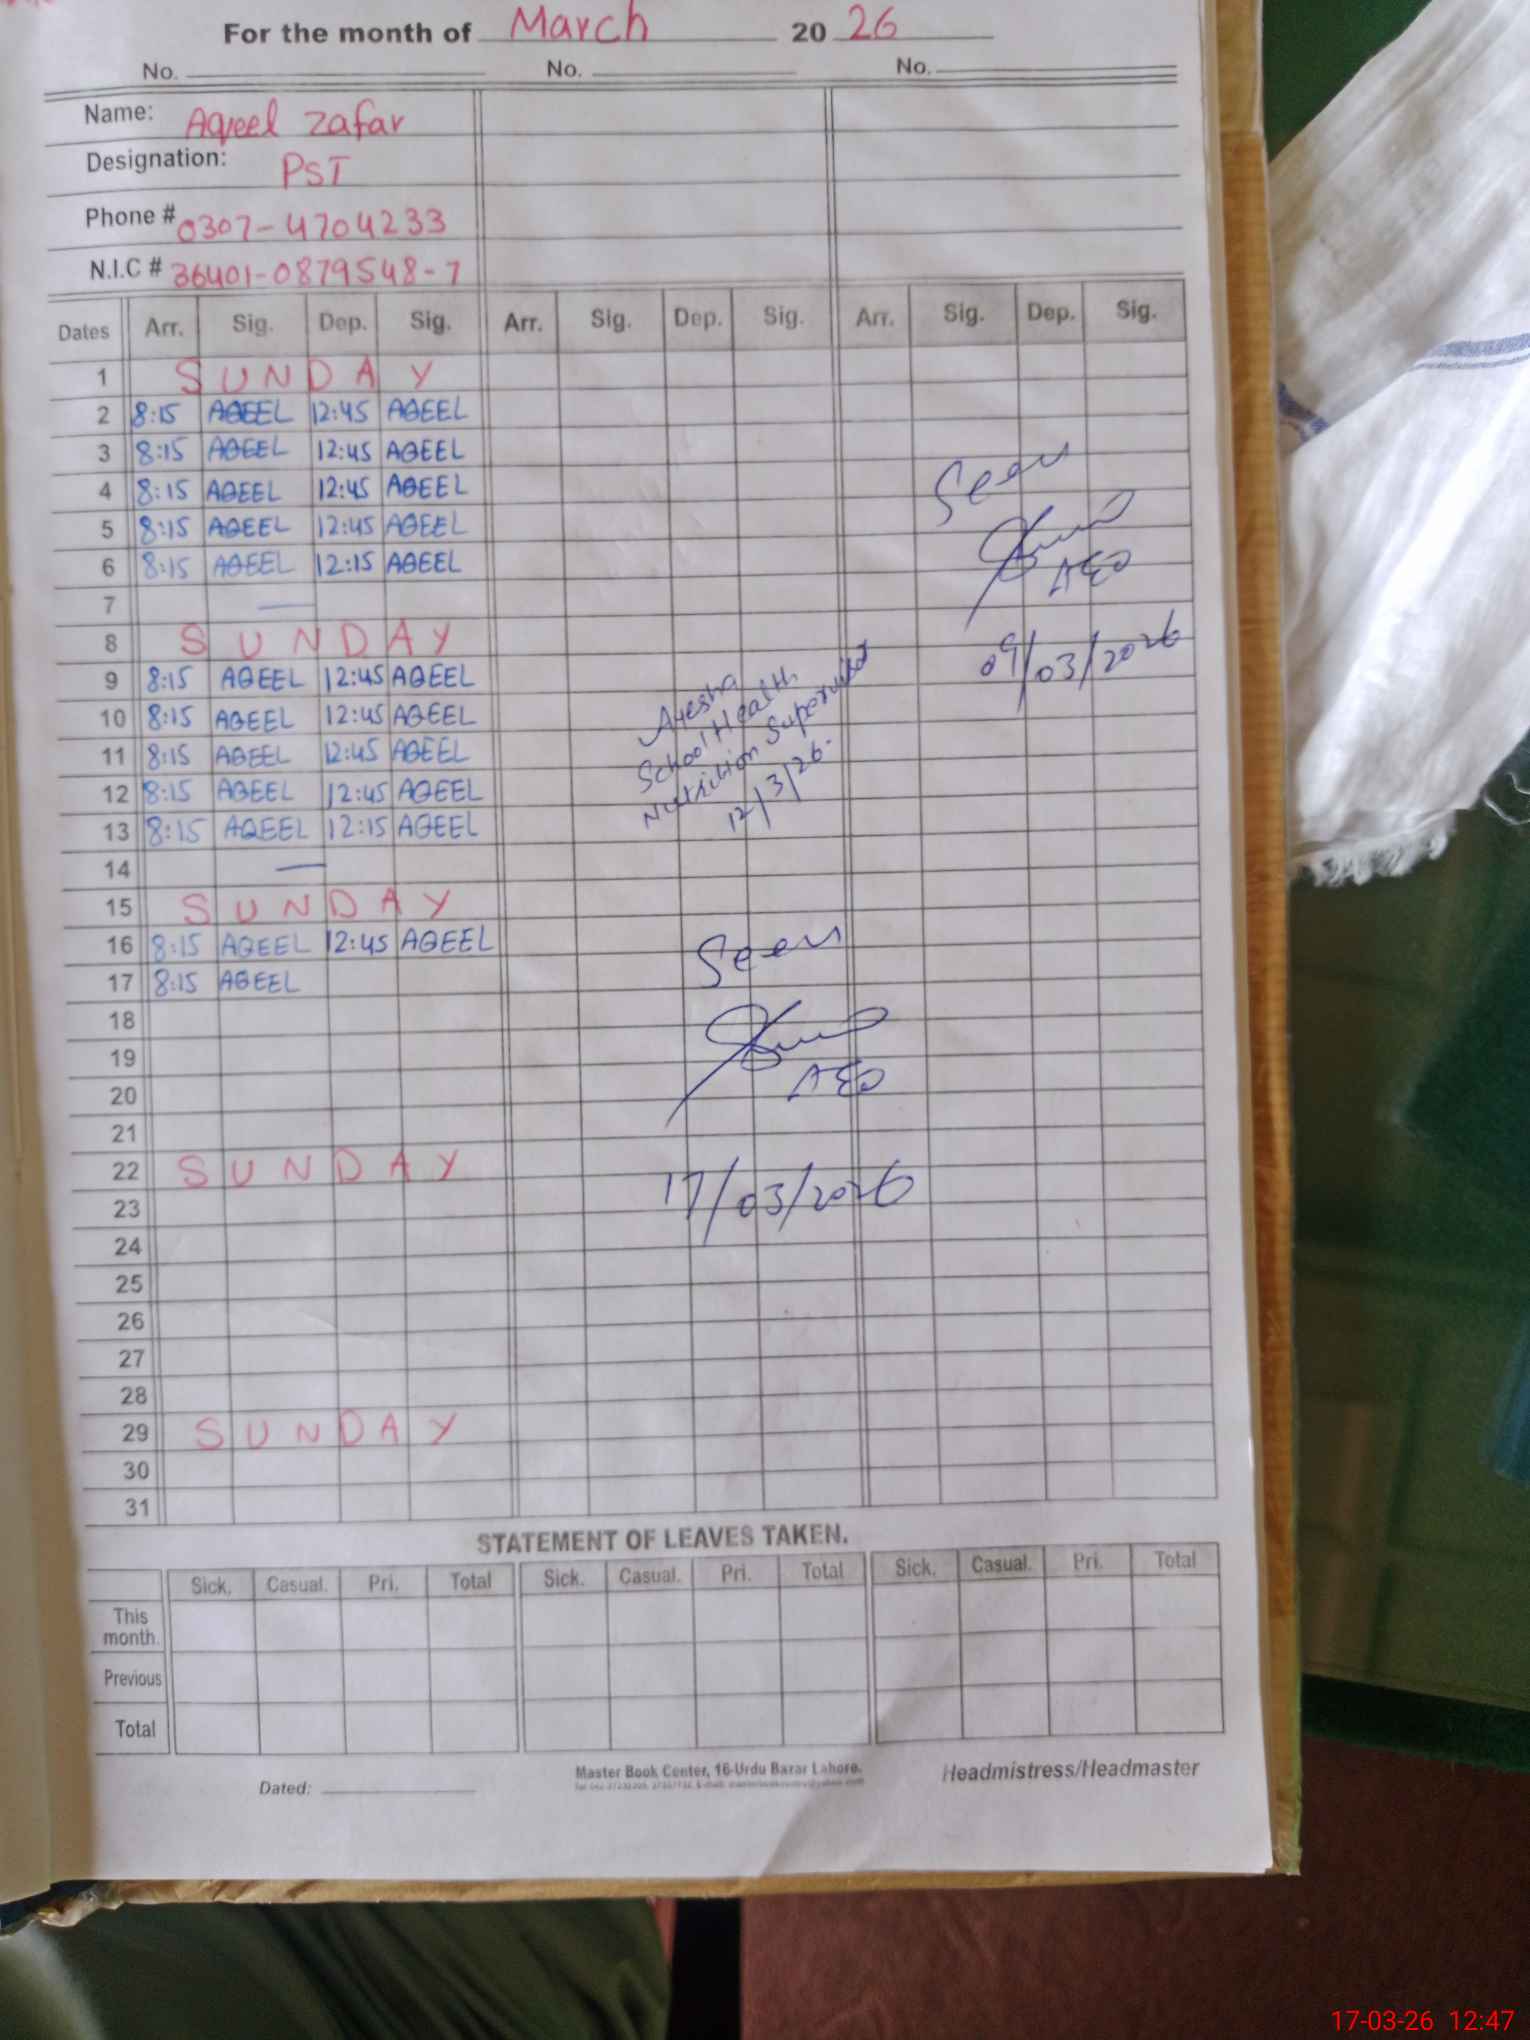 For the month of March 20 26
No. No. No.
Name: Aqeel Zafar
Designation: PST
Phone # 0307-4704233
N.I.C # 36401-0879548-7
Dates Arr. Sig. Dep. Sig. Arr. Sig. Dep. Sig. Arr. Sig. Dep. Sig.
1 SUNDAY
2 8:15 AQEEL 12:45 AQEEL
3 8:15 AQEEL 12:45 AQEEL
4 8:15 AQEEL 12:45 AQEEL
5 8:15 AQEEL 12:45 AQEEL
6 8:15 AQEEL 12:15 AQEEL
7 —
8 SUNDAY
9 8:15 AQEEL 12:45 AQEEL
10 8:15 AQEEL 12:45 AQEEL
11 8:15 AQEEL 12:45 AQEEL
12 8:15 AQEEL 12:45 AQEEL
13 8:15 AQEEL 12:15 AQEEL
14 —
15 SUNDAY
16 8:15 AQEEL 12:45 AQEEL
17 8:15 AQEEL
18
19
20
21
22 SUNDAY
23
24
25
26
27
28
29 SUNDAY
30
31
Seen
AEO
09/03/2026
Ayesha
School Health
Nutrition Supervisor
12/3/26.
Seen
AEO
17/03/2026
STATEMENT OF LEAVES TAKEN.
Sick. Casual. Pri. Total Sick. Casual. Pri. Total Sick. Casual. Pri. Total
This
month.
Previous
Total
Dated:
Master Book Center, 16-Urdu Bazar Lahore.
Headmistress/Headmaster
17-03-26 12:47